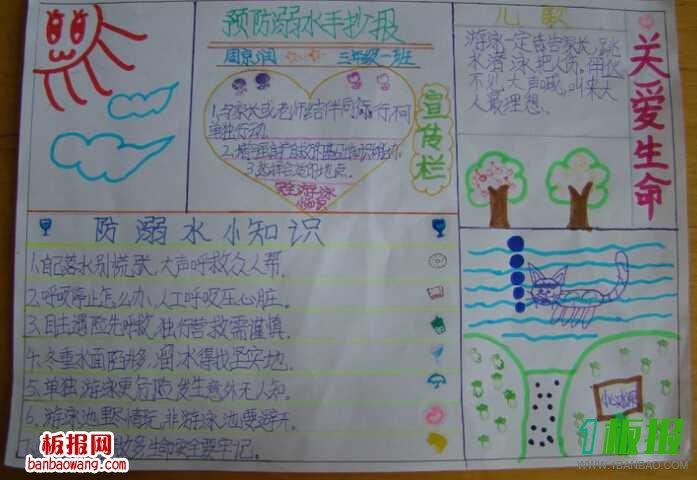 预防溺水手抄报
周京润 三年级一班
1.与家长或老师结伴同行,不可
单独行动.
3.选择合适的地点.
宣传栏
儿歌
游泳一定告告家长,
不见大声喊,叫来大
人最理想.
关爱生命
防溺水小知识
1.自己落水别慌张,大声呼救众人帮.
2.呼吸停止怎么办,人工呼吸压心脏.
3.目击遇险先呼救,独行营救需谨慎.
4.冬季水面陷井多,溜冰得找坚实地.
5.单独游泳更危险,发生意外无人知.
6.游泳池里尽情玩,非游泳池要避开.
7. 多生命安全要牢记.
板报网
banbaowang.com
1板报
WWW.1BANBAO.COM